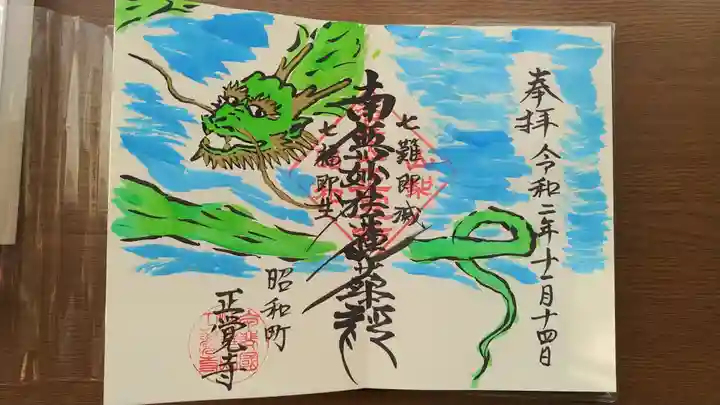 奉拝 令和二年十一月十四日
七難即滅
南無妙法蓮華経
七福即生
昭和町
正覚寺